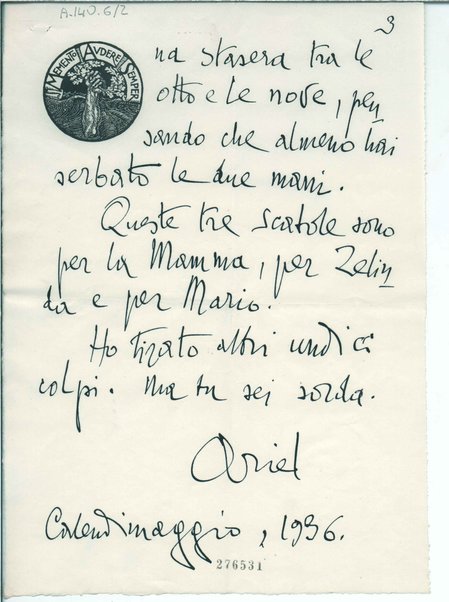 A.140.6/2
3
MEMENTO AVDERE SEMPER
na stasera tra le
otto e le nove, pen
sando che almeno hai
serbato le due mani.
Queste tre scatole sono
per la Mamma, per Zelin
da e per Mario.
Ho tirato altri undici
colpi. Ma tu sei sorda.
Ariel
Calendimaggio, 1936.
276531